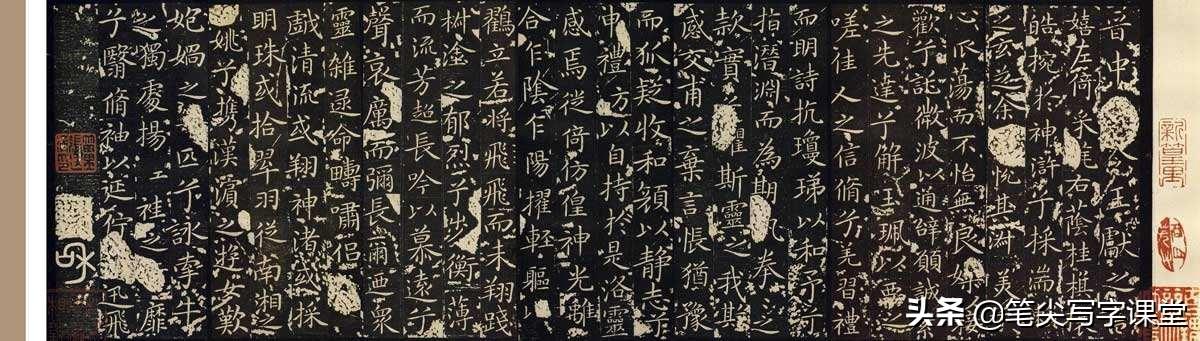 晋中王獻之
嬉左倚采旄右蔭桂棋
皓捥於神滸兮採湍
之玄芝余悅其淑美
心振蕩而不怡無良媒
歡兮託微波以通辭願誠
之先達兮解玉珮以要
嗟佳人之信脩兮羌習禮
而明詩抗瓊珶以和予兮
指潛淵而為期執拳之
款實懼斯靈之我其
感交甫之棄言悵猶豫
而狐疑收和顏以靜志兮
申禮防以自持於是洛靈
感焉徙倚彷徨神光離
合乍陰乍陽擢輕軀以
鸛立若將飛飛而未翔踐
椒塗之郁烈兮步衡薄
而流芳超長吟以慕遠兮
聲哀厲而彌長爾乃眾
靈雜遝命疇嘯侶
戲清流或翔神渚或採
明珠或拾翠羽從南湘之
姚兮攜漢濱之遊女歎
媧之匹兮詠牽牛
之獨處揚袿之靡
兮翳脩袖以延佇迅飛
头条 @笔尖写字课堂